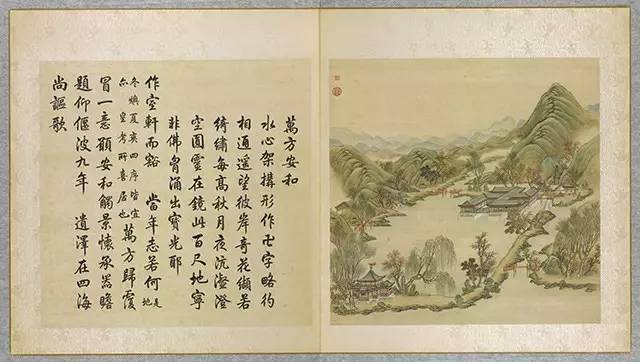 萬方安和
水心架構形作卍字略彴
相通遙望彼岸奇花纈若
綺繡每高秋月夜沆瀣澄
空圓靈在鏡此百尺地寧
非佛胷涌出寶光耶
作室軒而豁 當年志若何
是地
冬燠夏爽四序皆宜
皇考所喜居也
萬方歸覆
冒一意願安和觸景懷承器瞻
題仰偃波九年 遺澤在四海
尚謳歌